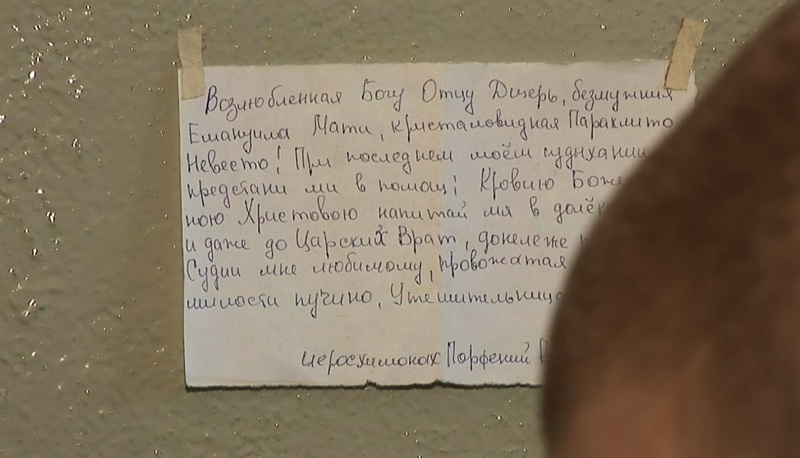 Возлюбленная Богу Отцу Дщерь, безмужная
Емануила Мати, кристаловидная Параклито
Невесто! При последнем моём
предстани ми в помощ! Кровию
ною Христовою напитай мя в
и даже до Царских Врат, донележе
Судии мне любимому, провожатая
милости пучино, Утешительнице
иеросхимонах Парфений